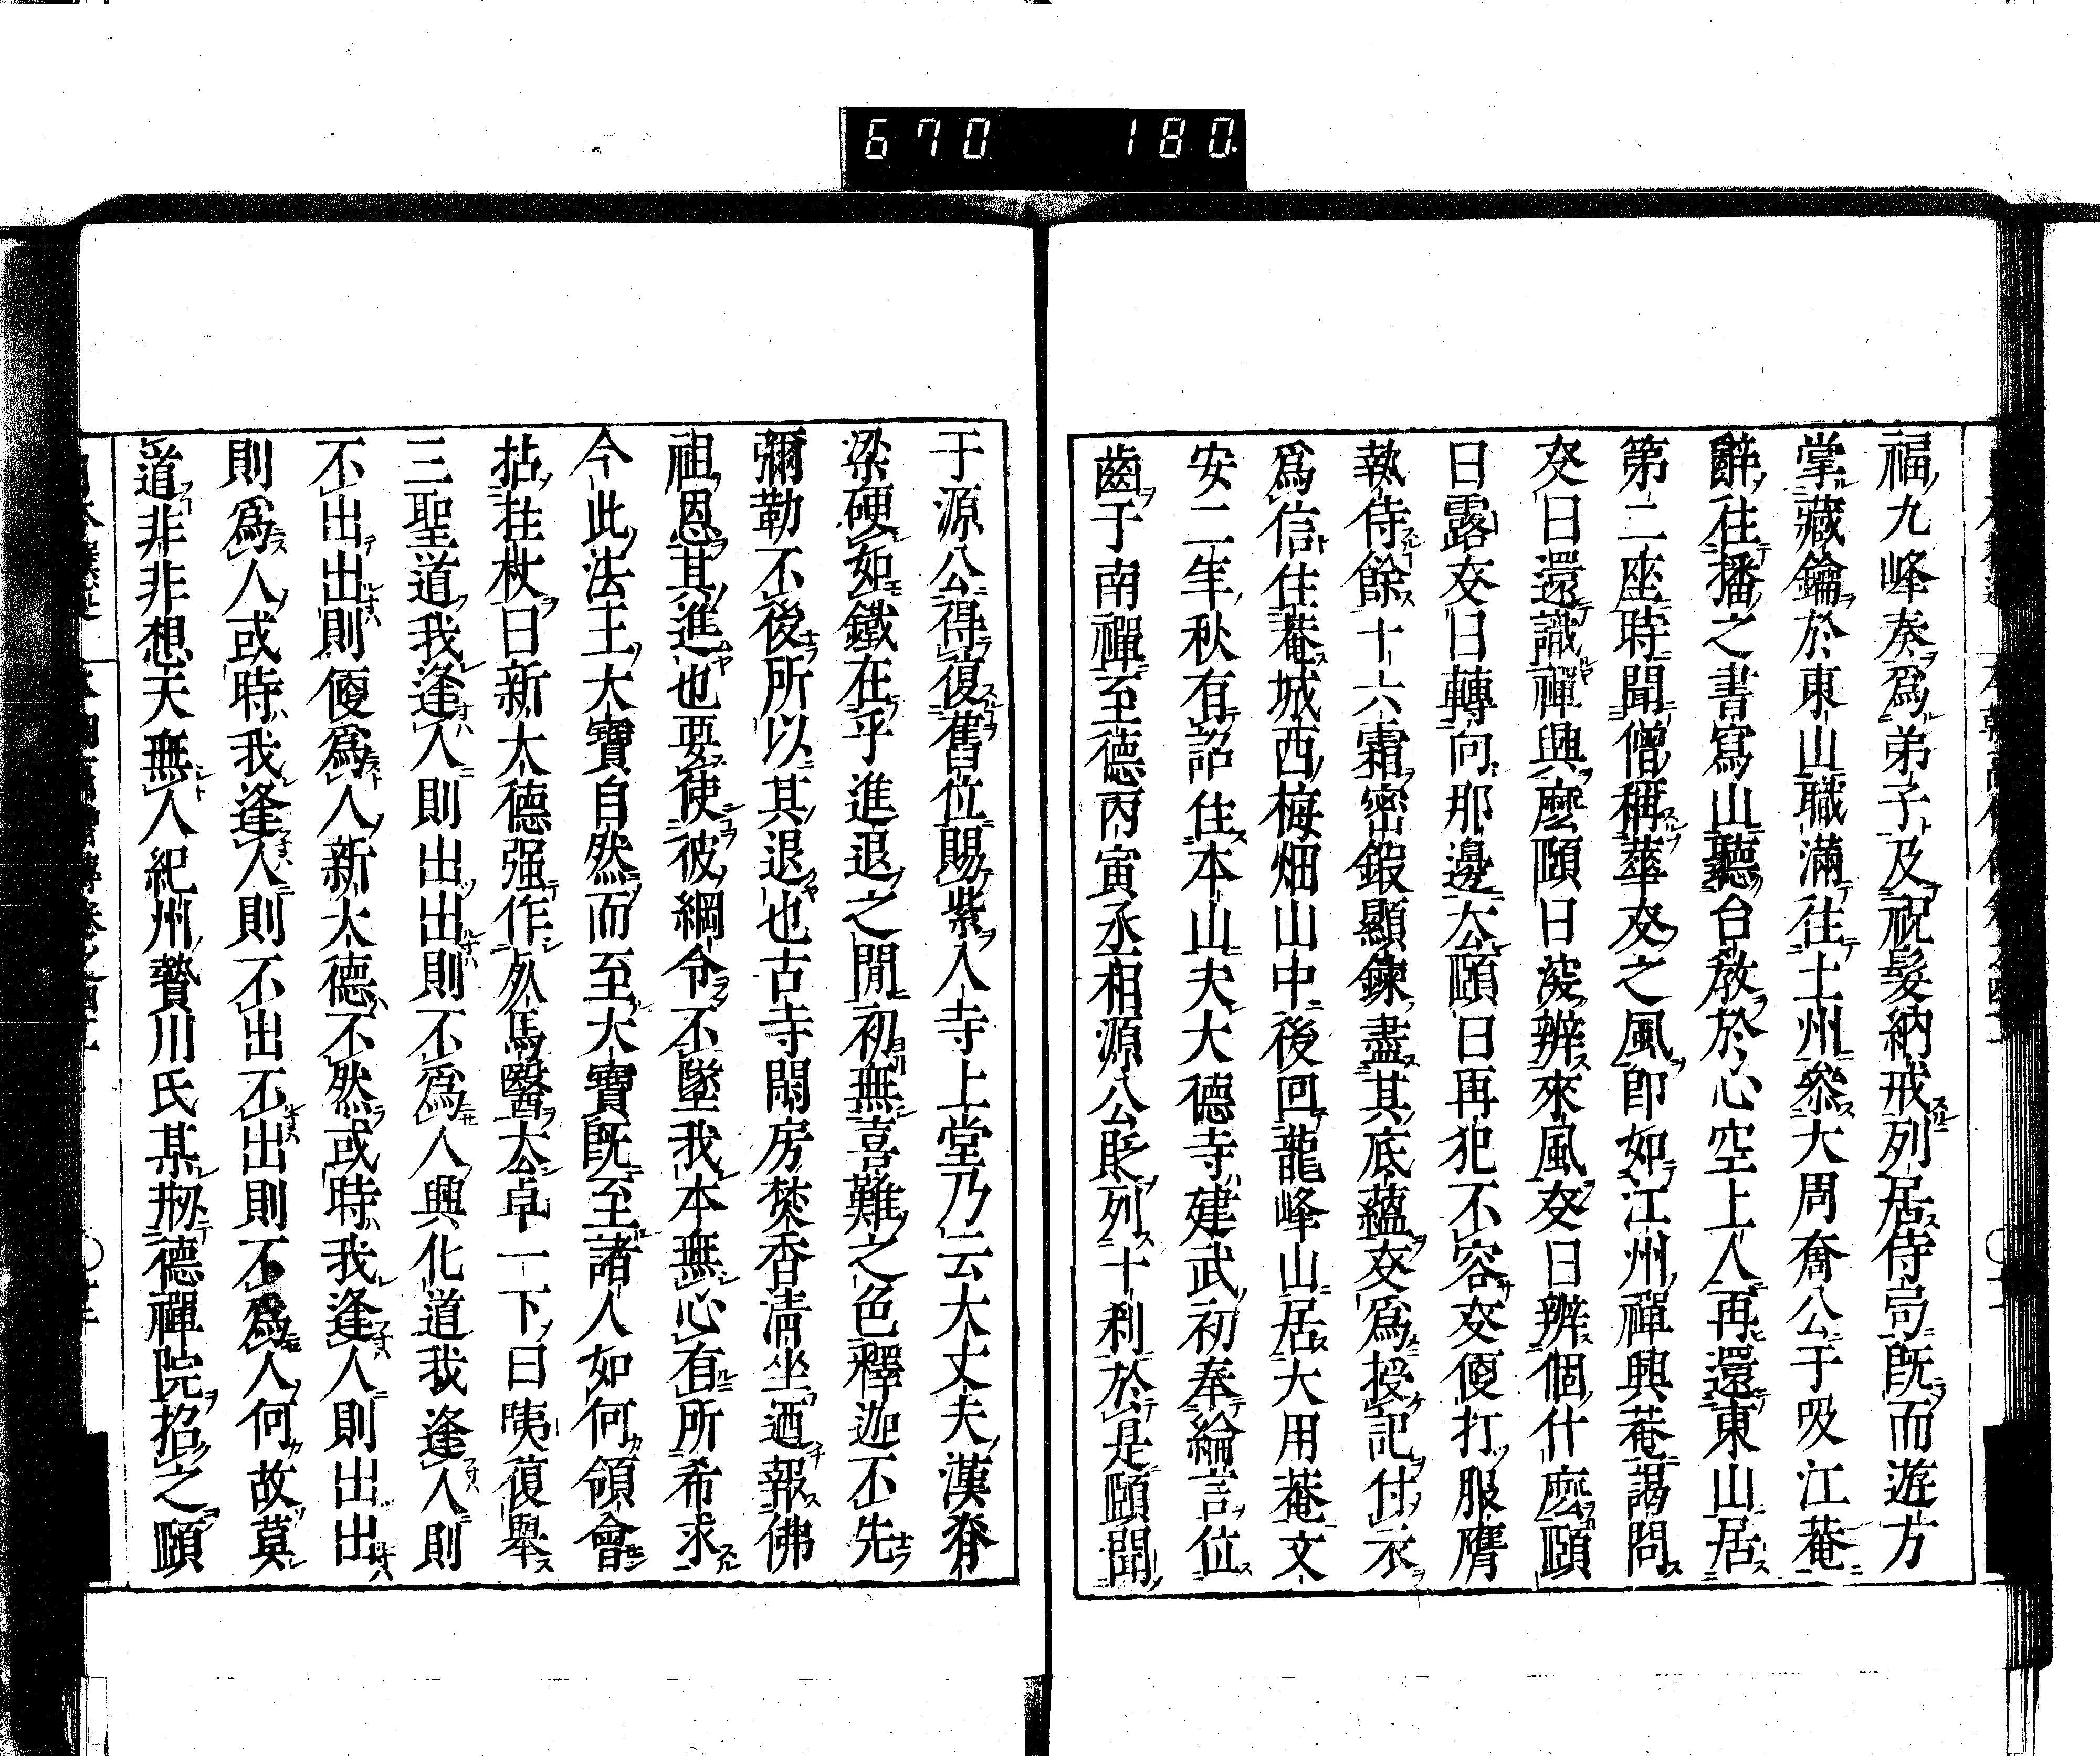 670 180
福九峰奏爲弟子及祝髮納戒列居侍局既而遊方
掌藏鑰於東山職滿往土州參大周奝公于吸江菴
辭往播之書寫山聽台教於心空上人再還東山居
第二座時聞僧稱華叟之風即如江州禪興菴謁問
叟曰還識禪興麼頤曰後辨來風叟曰辨個什麼頤
曰露叟曰轉向那邊去頤曰再犯不容叟便打服膺
執侍餘十六霜密鍛顯鍊盡其底蘊叟爲授記付衣
爲信住菴城西梅畑山中後回龍峰山居大用菴文
安二年秋有詔住本山夫大德寺建武初奉綸言位
齒于南禪至德丙寅丞相源公貶列十刹於是頤聞
于源公得復舊位賜紫入寺上堂乃云大丈夫漢脊
梁硬如鐵在乎進退之間初無喜難之色釋迦不先
彌勒不後所以其退也古寺閑房焚香清坐迺報佛
祖恩其進也要使彼綱令不墜我本無心有所希求
今此法王大寶自然而至大寶既至諸人如何領會
拈拄杖曰新大德强作死馬醫去卓一下曰咦復舉
三聖道我逢人則出出則不爲人興化道我逢人則
不出出則便爲人新大德不然或時我逢人則出出
則爲人或時我逢人則不出不出則不爲人何故莫
道非非想天無人紀州贄川氏某剏德禪院招之頤